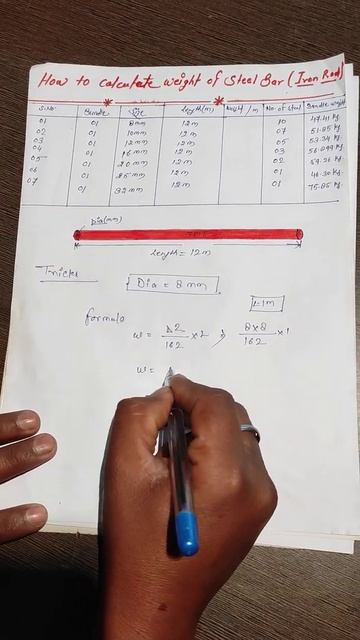 How to calculate weight of Steel Bar (Iron Rod)
S.No. Bundle Size Length(m) Weight/m No. of steel Bundle weight
01 01 8mm 12m 10 47.41 Kg
02 01 10mm 12m 07 51.85 Kg
03 01 12mm 12m 05 53.34 Kg
04 01 16mm 12m 03
05 01 20mm 12m 02
06 01 25mm 12m 01 46.30 Kg
07 01 32mm 12m 01 75.85 Kg
Dia(mm)
Length = 12m
Tricks
Dia = 8mm
L=1m
formula
W = D2/162 × L 8×8/162 × 1
W =